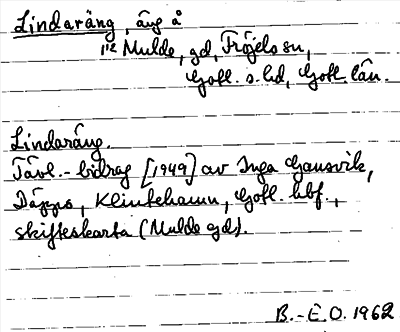 Lindaräng, äng å
1/12 Mulde, gd, Fröjels sn,
Gotl. s. hd, Gotl. län.
Lindaräng.
Tävl.-bidrag [1949] av Inga Gansvik,
Däpps, Klintehamn, Gotl. hbf.,
skifteskarta (Mulde gd).
B.-E.O. 1962